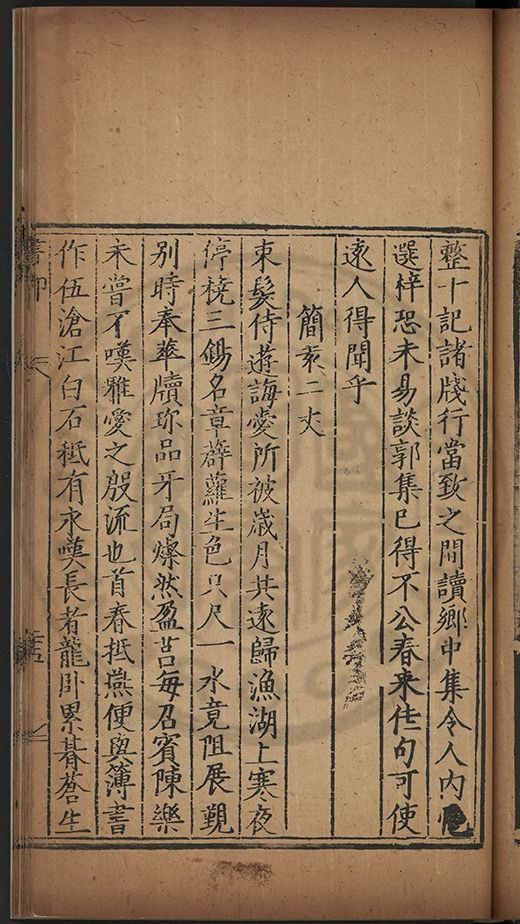 整十記諸牋行當致之間讀鄉中集令人内
選梓恐未易談郭集已得不公春来佳句可使
遠人得聞乎
簡袁二丈
束髮侍遊誨愛所被歲月其遠歸漁湖上寒夜
停橈三錫名章薜蘿生色只尺一水竟阻展覲
別時奉華牘珎品牙局燦然盈苫每召賓陳樂
未嘗不嘆雅愛之殷流也首春抵燕便與簿書
作伍滄江白石秪有永嘆長者龍卧累暮蒼生